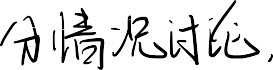 分情况讨论，